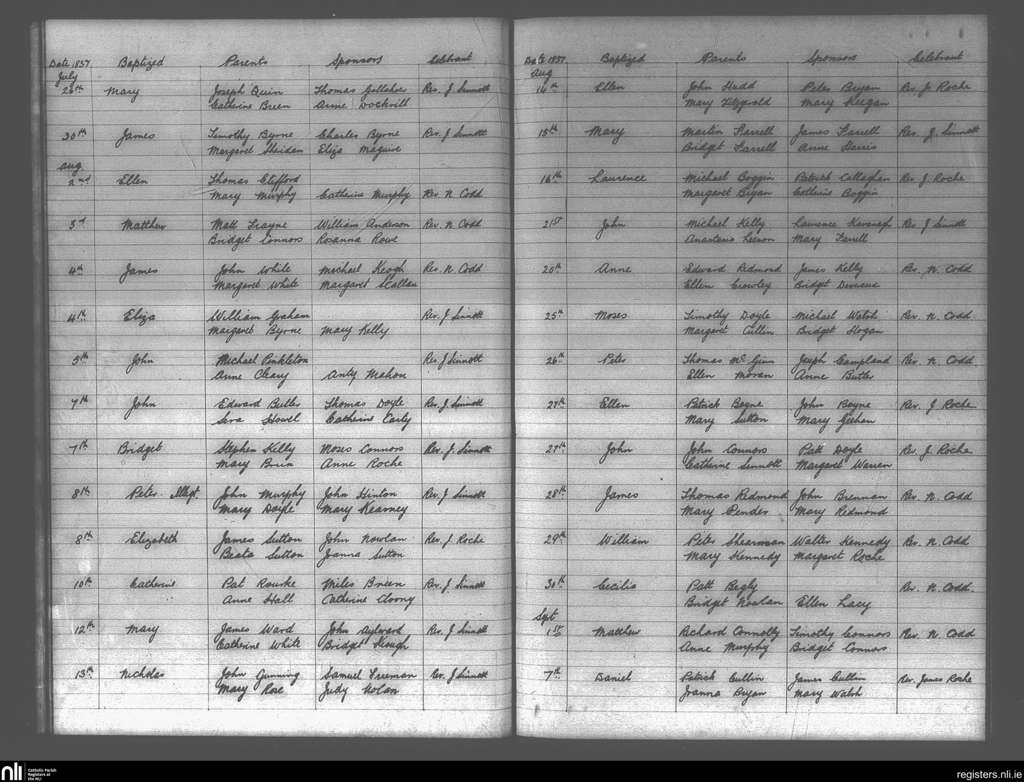 Date 1837 Baptized Parents Sponsors Celebrant
July
28th Mary Joseph Quin Thomas Gollaher Rev. J Sinnott
Catherine Breen Anne Dockrill
30th James Timothy Byrne Charles Byrne Rev. J Sinnott
Margaret Eliza Maguire
Aug
2nd Ellen Thomas Clifford
Mary Murphy Catherine Murphy Rev. N. Codd
3rd Matthew Matt Frayne William Anderson Rev. N. Codd
Bridget Connors Rosanna Rowe
4th James John White Michael Keogh Rev. N. Codd
Margaret White Margaret Scallan
4th Eliza William Graham Rev. J Sinnott
Margaret Byrne Mary Kelly
5th John Michael Pinkleton Rev. J Sinnott
Anne Cleary Anty Mahon
7th John Edward Butler Thomas Doyle Rev. J Sinnott
Sera Howel Catherine Carty
7th Bridget Stephen Kelly Moses Connors Rev. J. Sinnott
Mary Anne Roche
8th Peter Illegt. John Murphy John Hinton Rev. J Sinnott
Mary Doyle Mary Kearney
8th Elizabeth James Sutton John Nowlan Rev. J. Roche
Beata Sutton Joanna Sutton
10th Catherine Pat Rourke Miles Breen Rev. J Sinnott
Anne Hall Catherine Cloony
12th Mary James Ward John Aylward Rev. J Sinnott
Catherine White Bridget Keough
13th Nicholas John Gunning Samuel Freeman Rev. J Sinnott
Mary Roe Judy Nolan
Date 1837 Baptized Parents Sponsors Celebrant
Aug
14th Ellen John Hudd Peter Bryan Rev. J. Roche
Mary Fitzgerald Mary Keegan
15th Mary Martin Farrell James Farrell Rev. J. Sinnott
Bridget Farrell Anne Harris
16th Laurence Michael Boggin Patrick Callaghan Rev J Roche
Margaret Bryan Catherine Boggin
21st John Michael Kelly Laurence Kavanagh Rev. J Sinnott
Anastasia Leeson Mary Farrell
25th Anne Edward Redmond James Kelly Rev. N. Codd
Ellen Crowley Bridget Devereux
25th Moses Timothy Doyle Michael Walsh Rev. N. Codd
Margaret Cullen Bridget Hogan
26th Peter Thomas McGinn Joseph Rev. N. Codd
Ellen Moran Anne Butler
27th Ellen Patrick Boyne John Boyne Rev. J Roche
Mary Sutton Mary Geehan
27th John John Connors Patt Doyle Rev. J. Roche
Catherine Sinnott Margaret Warren
28th James Thomas Redmond John Brennan Rev. N. Codd
Mary Pender Mary Redmond
29th William Peter Shearman Walter Kennedy Rev. N. Codd
Mary Kennedy Margaret Roche
30th Cecilia Patt Begly Rev. N. Codd.
Bridget Nowlan Ellen Lacy
Sept
1st Matthew Richard Connolly Timothy Connors Rev. N. Codd
Anne Murphy Bridget Connors
7th Daniel Patrick Cullin James Cullin Rev. James Roche
Joanna Bryan Mary Walsh
nli Catholic Parish
Registers at
the NLI
registers.nli.ie